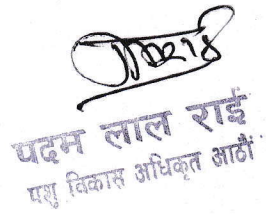 पदम लाल राई
पशु विकास अधिकृत आठौं